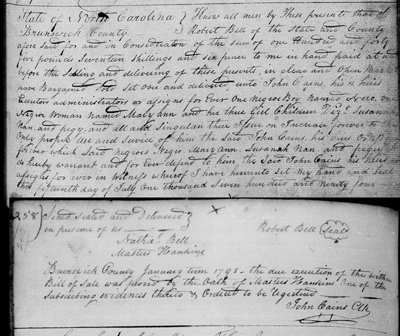 State of North Carolina } Know all men by These presents that I
Brunswick County } Robert Bell of the State and County
afore Said for and in Consideration of the sum of one Hundred and forty
five pounds Seventeen Shillings and Six pence to me in hand paid at and
before the Sealing and delivering of these presents, in clear and open
have Bargained Sold Set over and delivered unto John Cains, his heirs
Executors administrators or assigns for Ever One Negro Boy Named Nero, one
Negro Woman named Mary ann and her three Children Viz Susanah
Nan and pegy, and all and Singular their Increase forever to
proper use and of him the Said John Cains his heirs
for me which Said negroes Nero Mary ann Susanah Nan and pegy
do hereby warrant and for Ever defend to him the Said John Cains his Heirs or
assigns for ever in Witness whereof I have hereunto set my hand and Seal
this fifteenth day of July One thousand Seven hundred and ninety four
258) Sign'd Seald and Delivered }
in presence of us } Robert Bell (Seal)
Nathal. Bell
Masters Hankins
Brunswick County January term 1795 - the due execution of the within
Bill of Sale was proved by the Oath of Masters Hankins One of the
Subscribing evidences thereto & Ordered to be registered
John Cains Clk